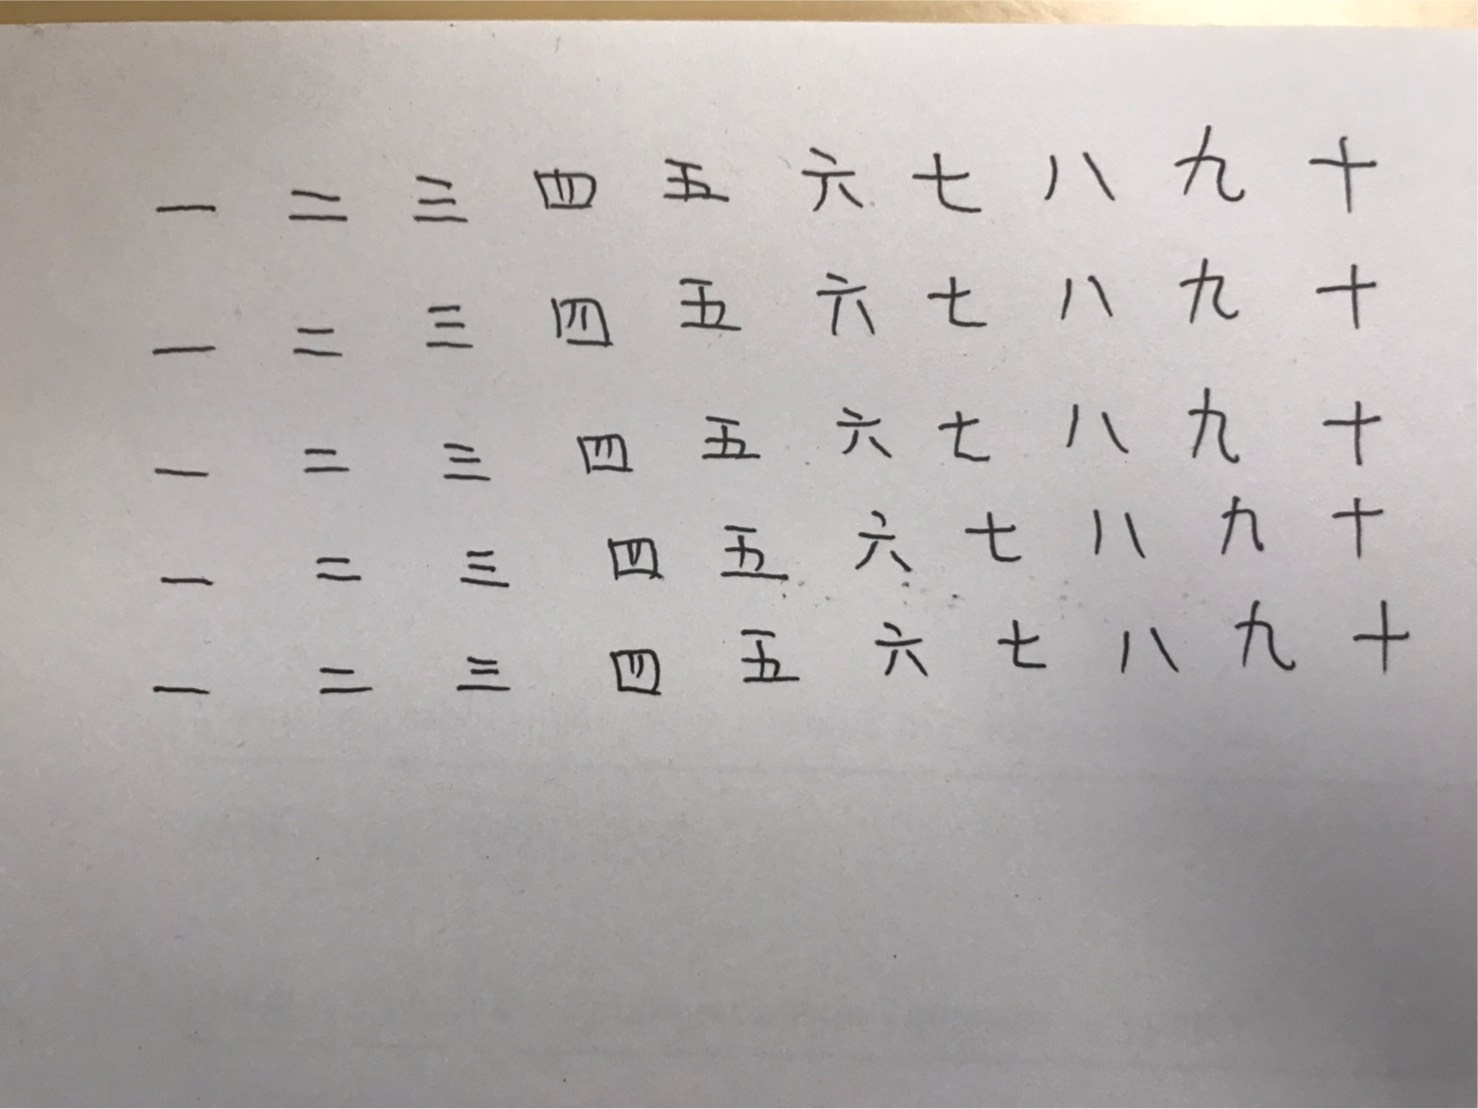 一 二 三 四 五 六 七 八 九 十
一 二 三 四 五 六 七 八 九 十
一 二 三 四 五 六 七 八 九 十
一 二 三 四 五 六 七 八 九 十
一 二 三 四 五 六 七 八 九 十